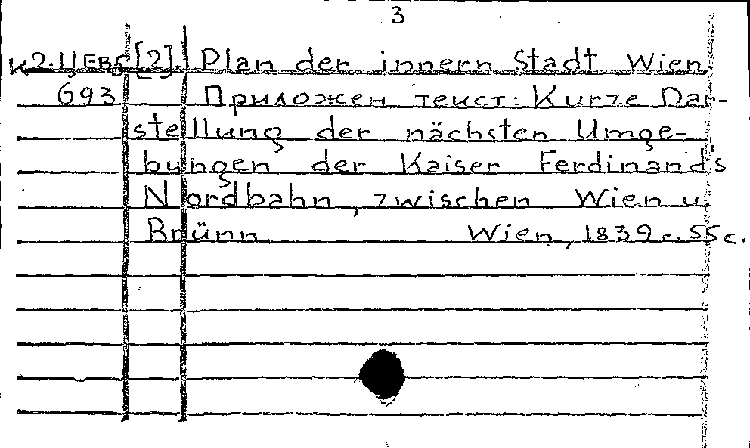 3
К2-ЦЕвс[2]. Plan der innern Stadt Wien
693 Приложен текст: Kurze Dar-
stellung der nächsten Umge-
bungen der Kaiser Ferdinand's
Nordbahn, zwischen Wien u.
Brünn Wien, 1839 c. 55 c.